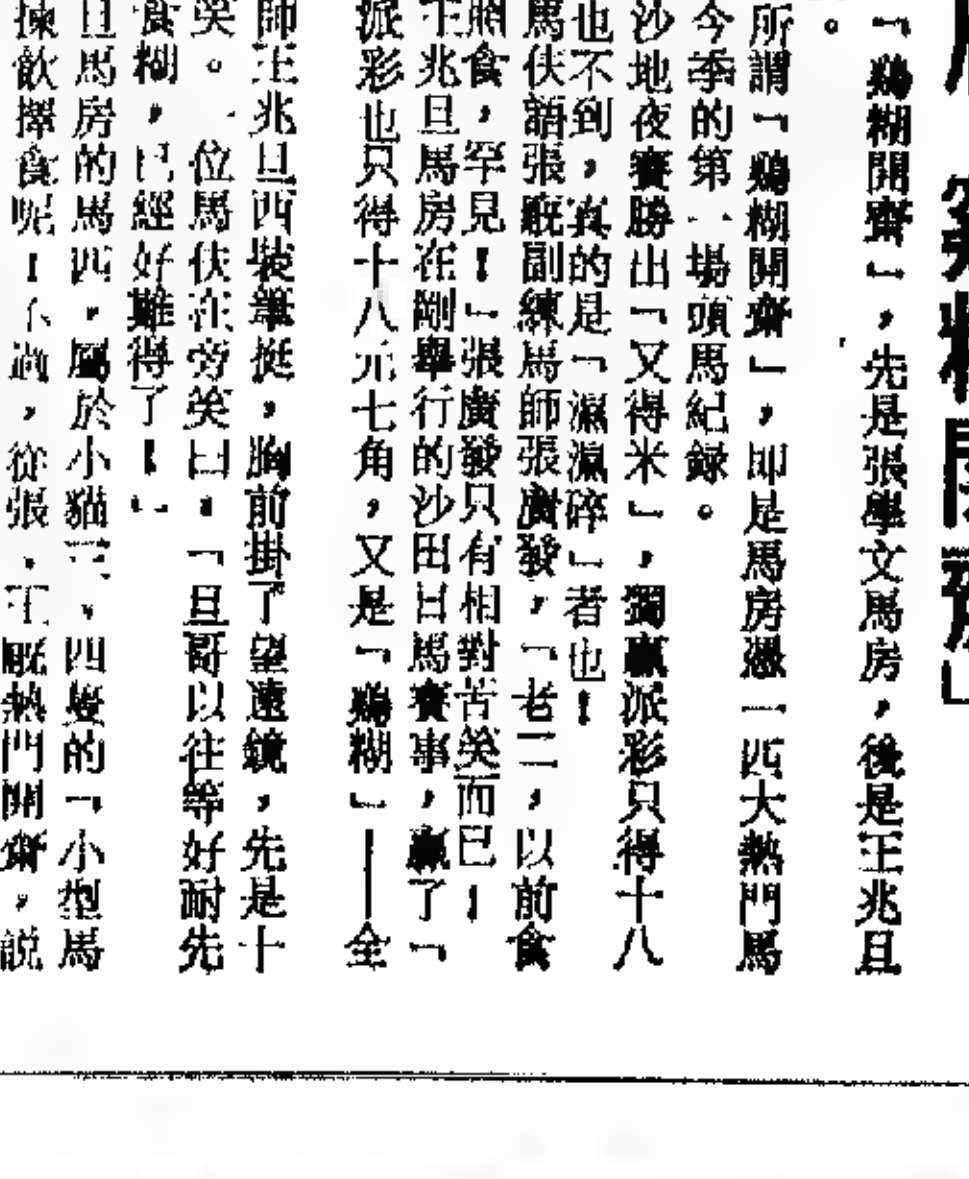 「鷄糊開齋」，先是張學文馬房，後是王兆旦
。
所謂「鷄糊開齋」，即是馬房憑一匹大熱門馬
今季的第一場頭馬紀録。
沙地夜賽勝出「又得米」，獨贏派彩只得十八
也不到，真的是「濕濕碎」者也！
馬伕語張廐副練馬師張廣發，「老二，以前食
糊食，罕見！」張廣發只有相對苦笑而已！
王兆旦馬房在剛舉行的沙田日馬賽事，贏了「
派彩也只得十八元七角，又是「鷄糊」——全
師王兆旦西裝筆挺，胸前掛了望遠鏡，先是十
笑。一位馬伕在旁笑曰：「旦哥以往等好耐先
食糊，已經好難得了！」
旦馬房的馬匹，屬於小貓三、四隻的「小型馬
揀飲擇食呢！不過，從張、王廐熱門開齋，説